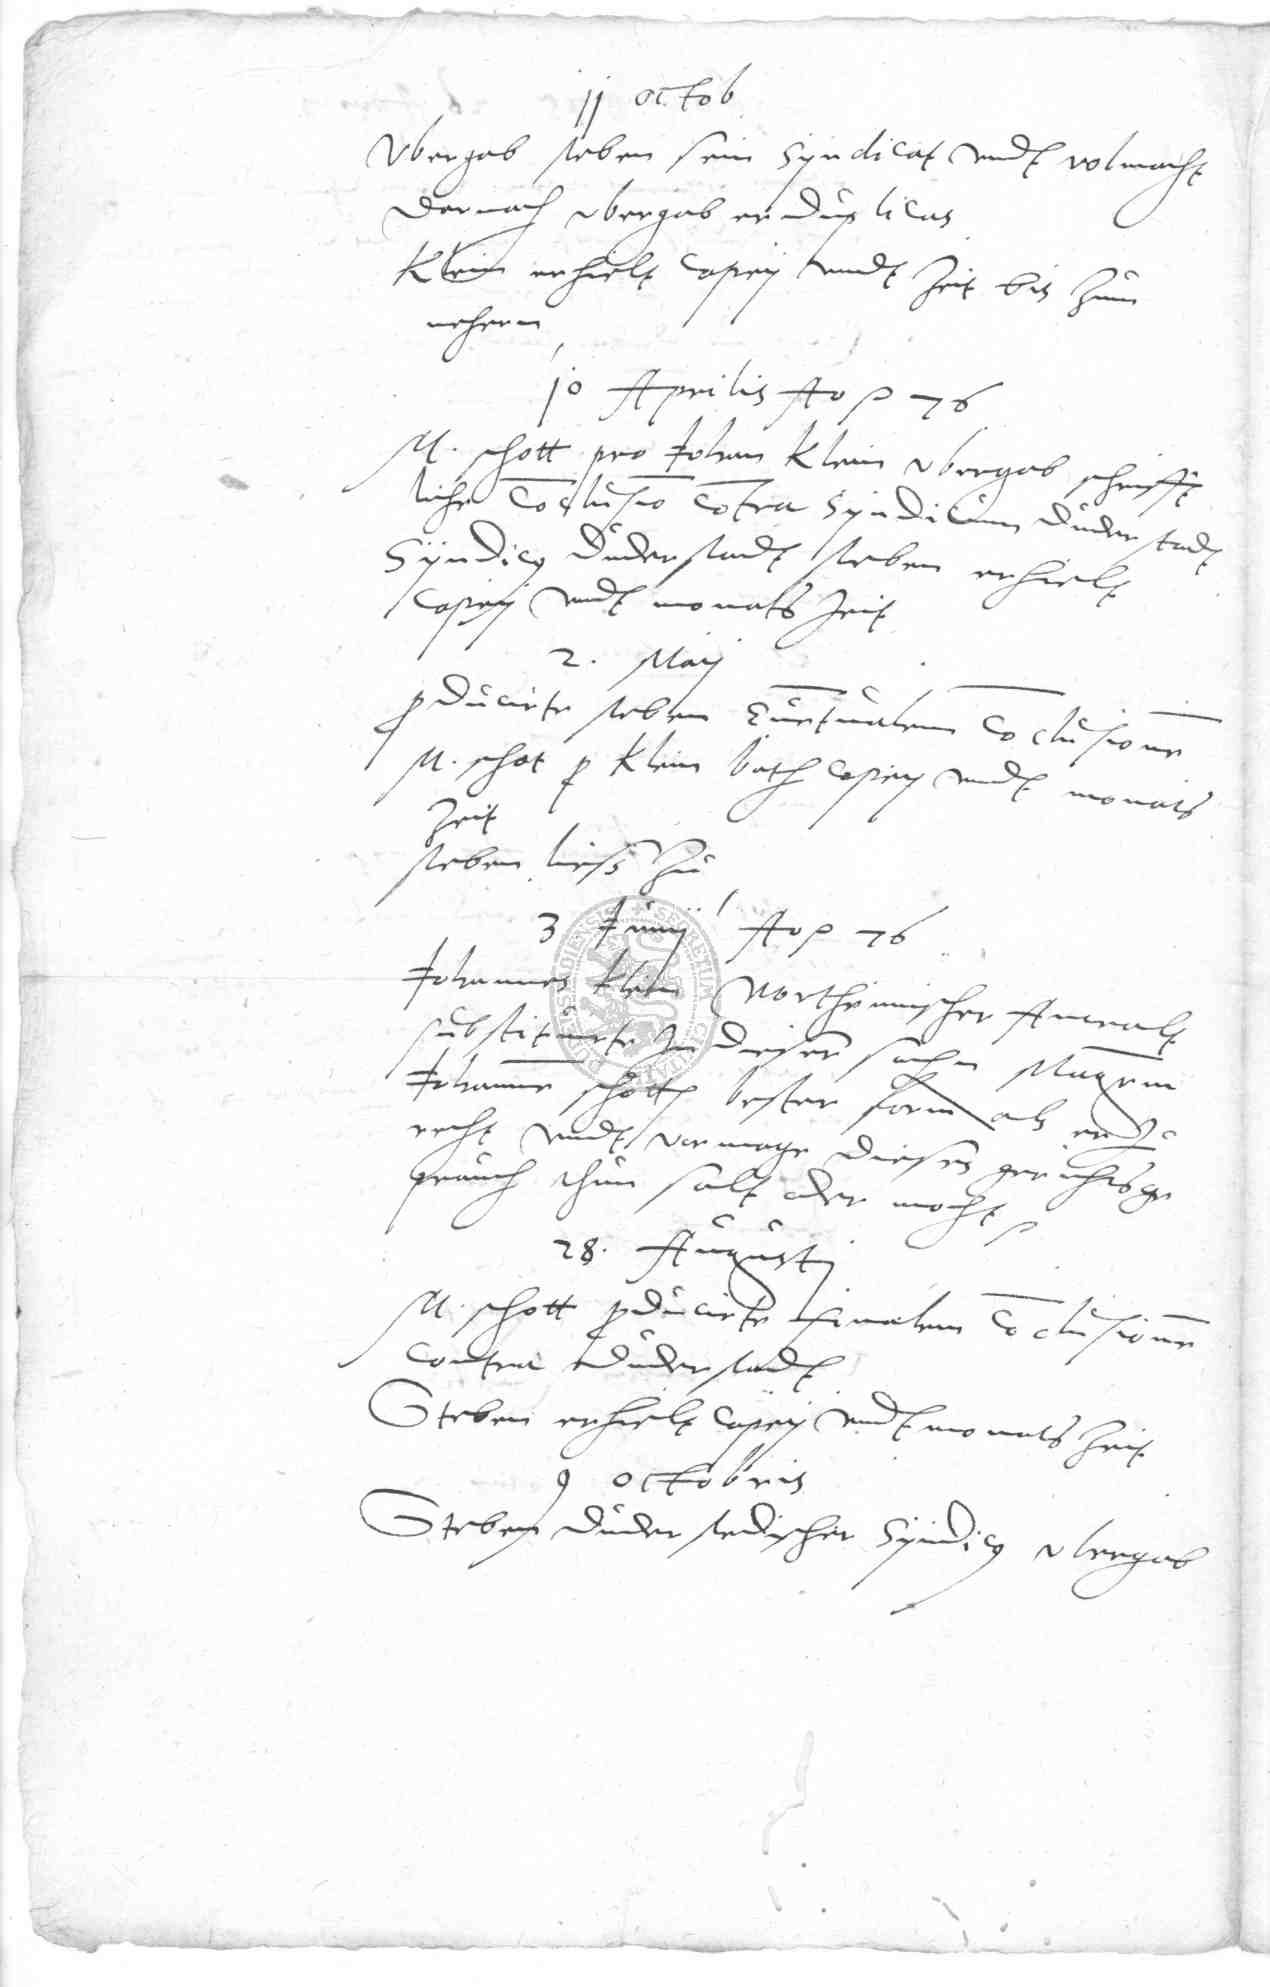 11 octob
Vbergab steben sein Syndicat vndt volmacht
Dernach vbergab er duplicas
Klein erhielt Copeÿ vndt Zeit bis Zum
nehern
10 Aprilis Ao p 76
M. schott pro Johan Klein vbergab schrifft
liche Coclusio Cotra Syndicum duderstadt
Sÿndicq Duderstadt steben erhielt
Copeÿ vndt monats Zeit
2. Maÿ
pducirte steben Euetualem Coclusione
M. schot p Klein bath Copeÿ vndt monats
Zeit
steben liess Zu
3 Junÿ Ao p 76
Johannes Klein Northeimischer Anwalt
substituirte In dieser sachen Magrm
Johanne schott bester form als er Zc
recht vndt vermoge dieses gerichts ge
prauch thun solt oder mocht p
28. Augusti
M. schott pducirte finalem Coclusione
Contra Duderstadt
Steben erhielt Copeÿ vndt monats Zeit
9 octobris
Steben duderstedischer Sÿndicq vbergab
SECRETUM